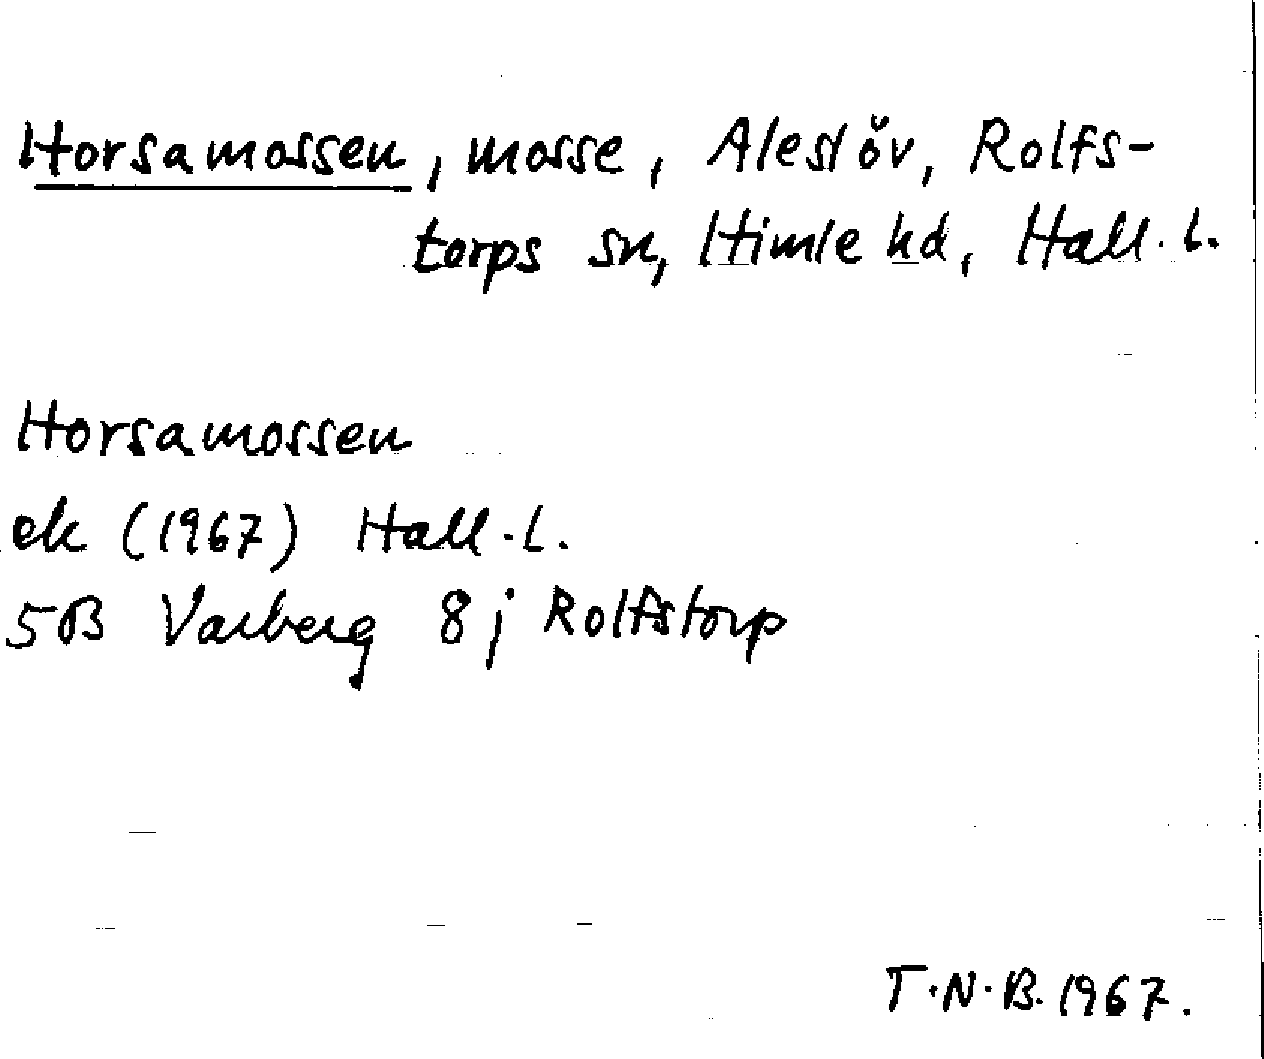 Horsamossen, mosse, Aleslöv, Rolfs-
torps sn, Himle hd, Hall. l.
Horsamossen
ek (1967) Hall. L.
5B Varberg 8j Rolfstorp
T.N.B. 1967.